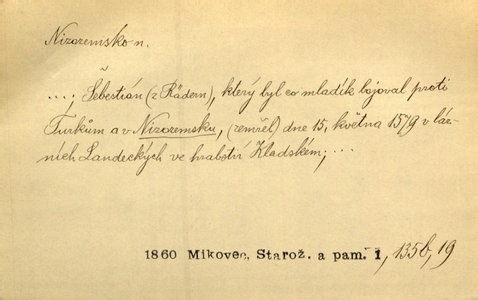 Nizozemsko n.
...; Šebestián (z Rädern), který byl co mladík bojoval proti
Turkům a v Nizozemsku, (zemřel) dne 15. května 1579 v láz-
ních Landeckých ve hrabství Kladském; ...
1860 Mikovec, Starož. a pam. 1, 135b, 19